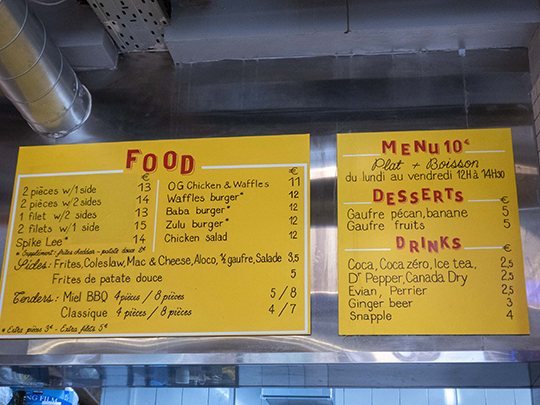 FOOD
€
2 pièces w/1 side 13
2 pièces w/2 sides 14
1 filet w/2 sides 13
2 filets w/1 side 15
Spike Lee* 14
* Supplément: frites cheddar - patate douce 2€
€
OG Chicken & Waffles 11
Waffles burger* 12
Baba burger* 12
Zulu burger* 12
Chicken salad 12
Sides: Frites, Coleslaw, Mac & Cheese, Aloco, ½ gaufre, Salade 3,5
Frites de patate douce 5
Tenders: Miel BBQ 4 pièces / 8 pièces 5 / 8
Classique 4 pièces / 8 pièces 4 / 7
* Extra pièce 3€ - Extra filets 5€
MENU 10€
Plat + Boisson
du lundi au vendredi 12H à 14H30
DESSERTS
€
Gaufre pécan, banane 5
Gaufre fruits 5
DRINKS
€
Coca, Coca zéro, Ice tea, 2,5
Dr Pepper, Canada Dry 2,5
Evian, Perrier 2,5
Ginger beer 3
Snapple 4
NG FILM